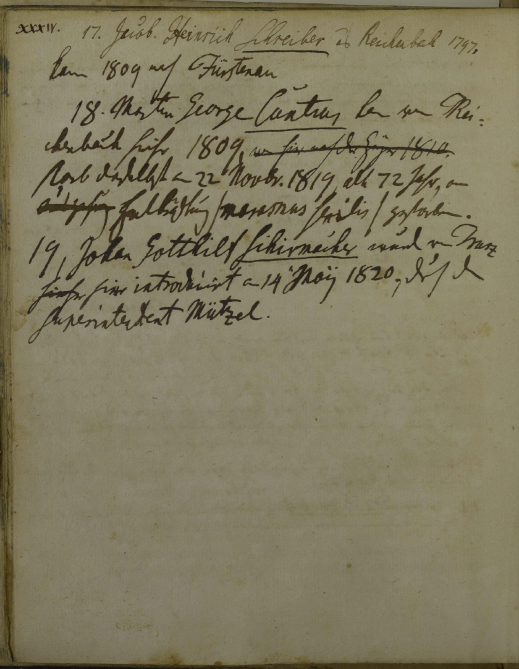 XXXIV.
17. Jacob. Heinrich Schreiber aus Reichenbach 1797.
kam 1809 nach Fürstenau
18. Martin George Cuntius kam von Rei-
chenbach hieher 1809,
starb daselbst am 22 Novbr. 1819, alt 72 Jahr, an
Entkräftung / marasmus senilis / gestorben.
19, Johan Gottlilf Schirmacher ward von
hier introducirt am 14 May 1820, durch den
Superintendent Mützel.